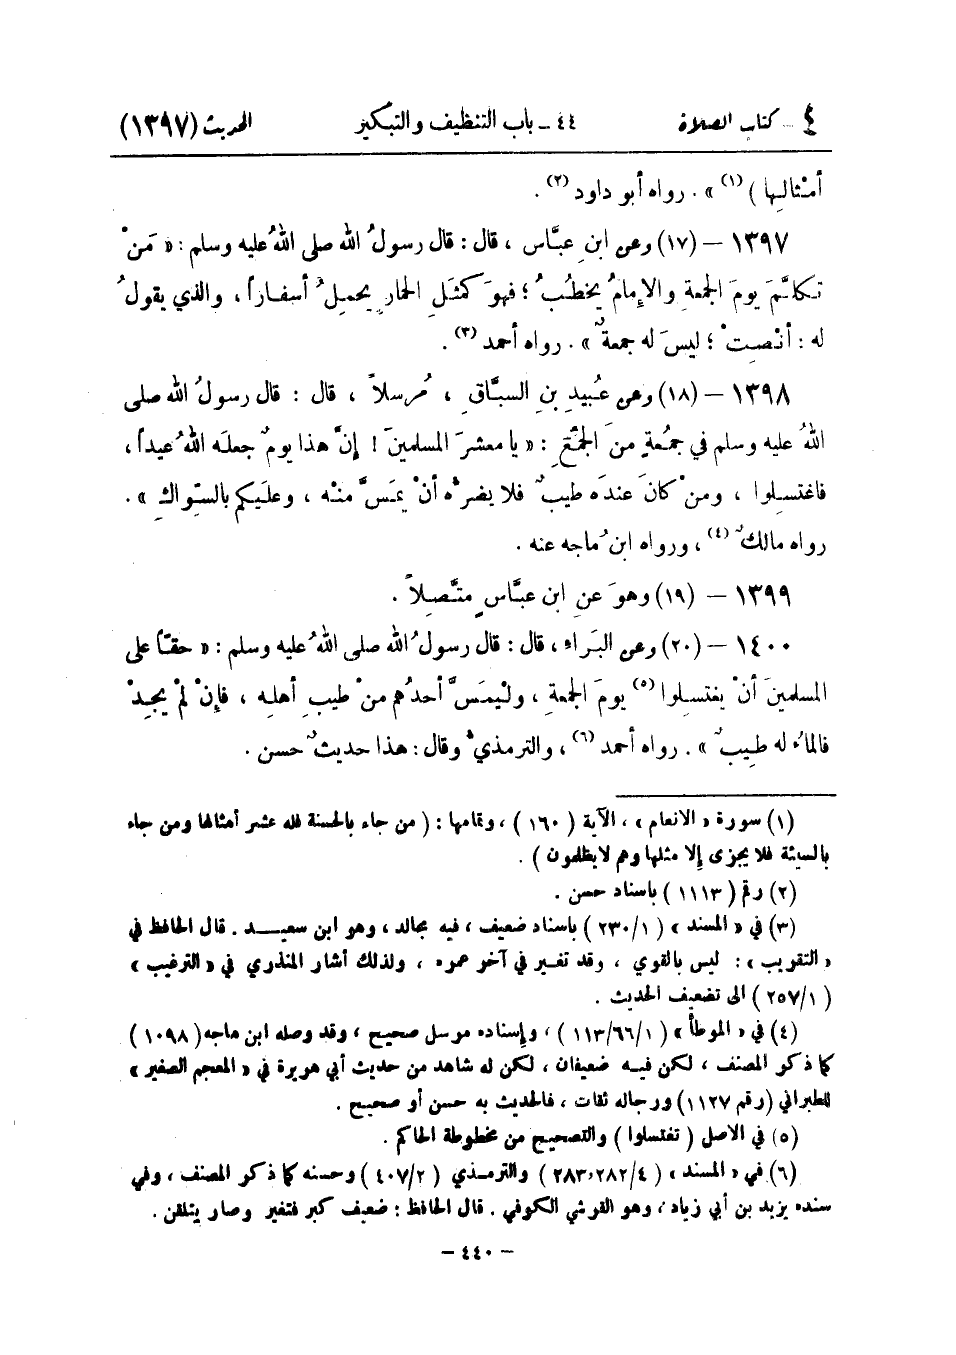 ٤ - كتاب الصلاة ٤٤ - باب التنظيف والتبكير الحديث (١٣٩٧)
أمثالها ) (١) » . رواه أبو داود (٢) .
١٣٩٧ – (١٧) وعن ابنِ عبَّاس ، قال : قال رسولُ الله صلى اللهُ عليه وسلم : « مَنْ
تكلَّمَ يومَ الجمعةِ والإمامُ يخطُبُ ؛ فهوَ كمثَلِ الحمارِ يحمِلُ أسفاراً ، والذي يقولُ
له : أنْصِتْ ؛ ليسَ له جمعةٌ » . رواه أحمد (٣) .
١٣٩٨ – (١٨) وعن عُبيدِ بنِ السبَّاقِ ، مُرسلاً ، قال : قال رسولُ الله صلى
اللهُ عليه وسلم في جمُعةٍ منَ الجُمَعِ : « يا معشرَ المسلمينَ ! إنَّ هذا يومٌ جعلَه اللهُ عيداً ،
فاغتسِلوا ، ومنْ كانَ عندَه طيبٌ فلا يضرُّه أنْ يمَسَّ منْه ، وعلَيكم بالسِّواكِ » .
رواه مالكٌ (٤) ، ورواه ابنُ ماجه عنه .
١٣٩٩ – (١٩) وهوَ عنِ ابنِ عبَّاسٍ متَّصِلاً .
١٤٠٠ – (٢٠) وعن البَراءِ ، قال : قال رسولُ الله صلى اللهُ عليه وسلم : « حقّاً على
المسلمينَ أنْ يغتسِلوا (٥) يومَ الجمعةِ ، ولْيمَسَّ أحدُهم منْ طيبِ أهلِه ، فإنْ لمْ يجِدْ
فالماءُ له طِيبٌ » . رواه أحمد (٦) ، والترمذيُّ وقال : هذا حديثٌ حسن .
(١) سورة « الانعام » ، الآية ( ١٦٠ ) ، وتمامها : ( من جاء بالحسنة فله عشر أمثالها ومن جاء
بالسيئة فلا يجزى إلا مثلها وهم لا يظلمون ) .
(٢) رقم ( ١١١٣ ) باسناد حسن .
(٣) في « المسند » ( ٢٣٠/١ ) باسناد ضعيف ، فيه مجالد ، وهو ابن سعيد . قال الحافظ في
« التقريب » : ليس بالقوي ، وقد تغير في آخر عمره ، ولذلك أشار المنذري في « الترغيب »
( ٢٥٧/١ ) الى تضعيف الحديث .
(٤) في « الموطأ » ( ١١٣/٦٦/١ ) ، وإسناده مرسل صحيح ، وقد وصله ابن ماجه ( ١٠٩٨ )
كما ذكر المصنف ، لكن فيه ضعيفان ، لكن له شاهد من حديث أبي هريرة في « المعجم الصغير »
للطبراني (رقم ١١٢٧) ورجاله ثقات ، فالحديث به حسن أو صحيح .
(٥) في الاصل ( تغتسلوا ) والتصحيح من مخطوطة الحاكم .
(٦) في « المسند » ( ٢٨٣،٢٨٢/٤ ) والترمذي ( ٤٠٧/٢ ) وحسنه كما ذكر المصنف ، وفي
سنده يزيد بن أبي زياد ، وهو القرشي الكوفي . قال الحافظ : ضعيف كبر فتغير وصار يتلقن .
– ٤٤٠ –